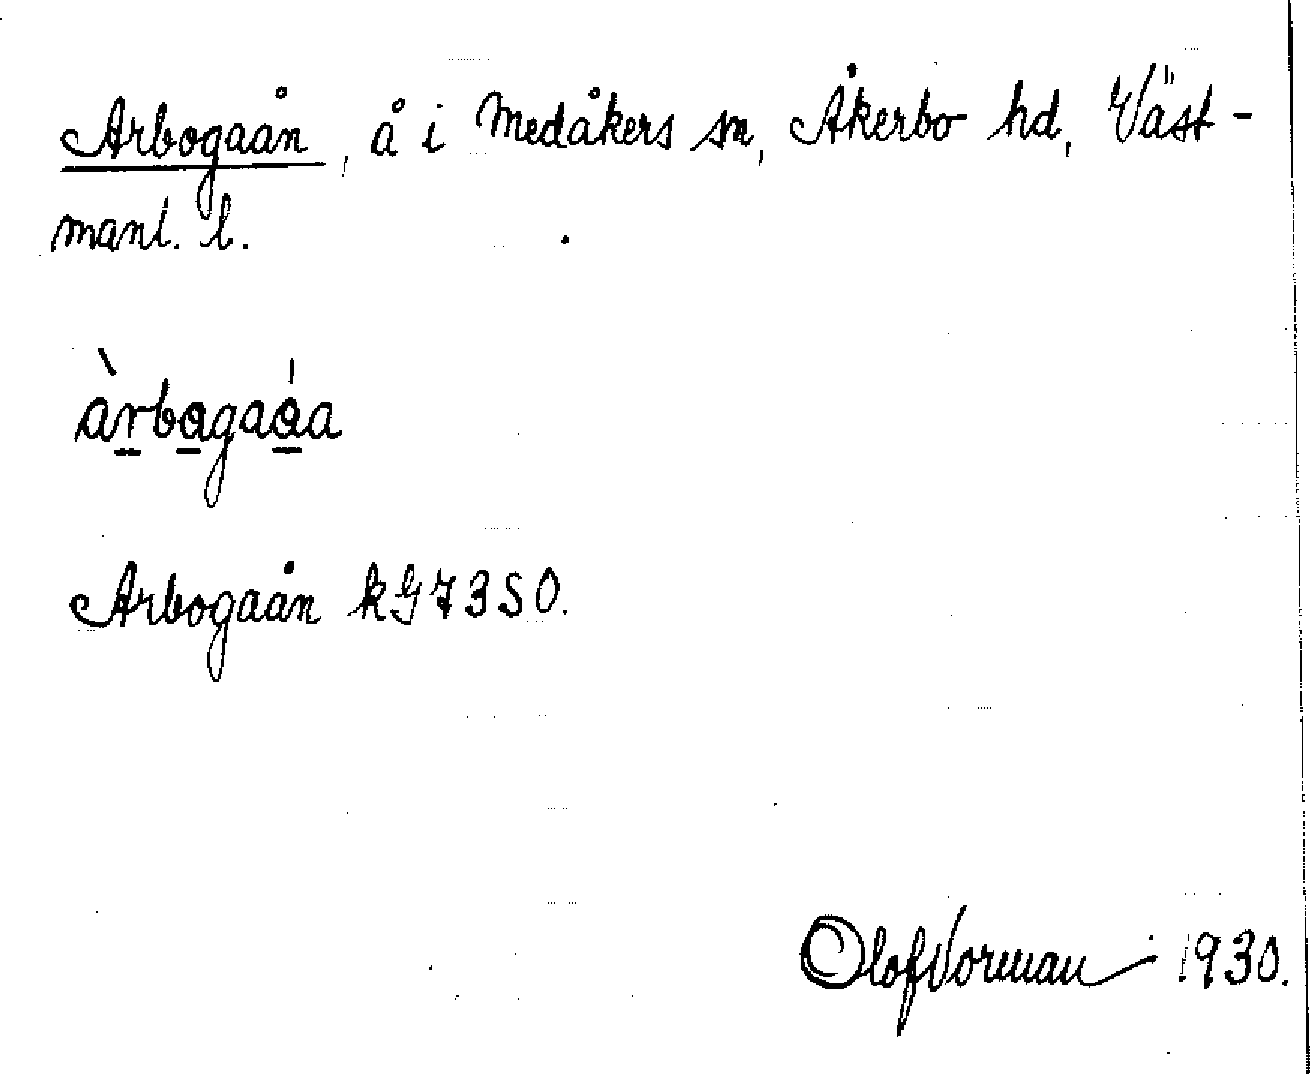 Arbogaån, å i Medåkers sn, Åkerbo hd, Väst-
manl. l.
àrbogaåa
Arbogaån kG73SO.
Olof Vorman 1930.